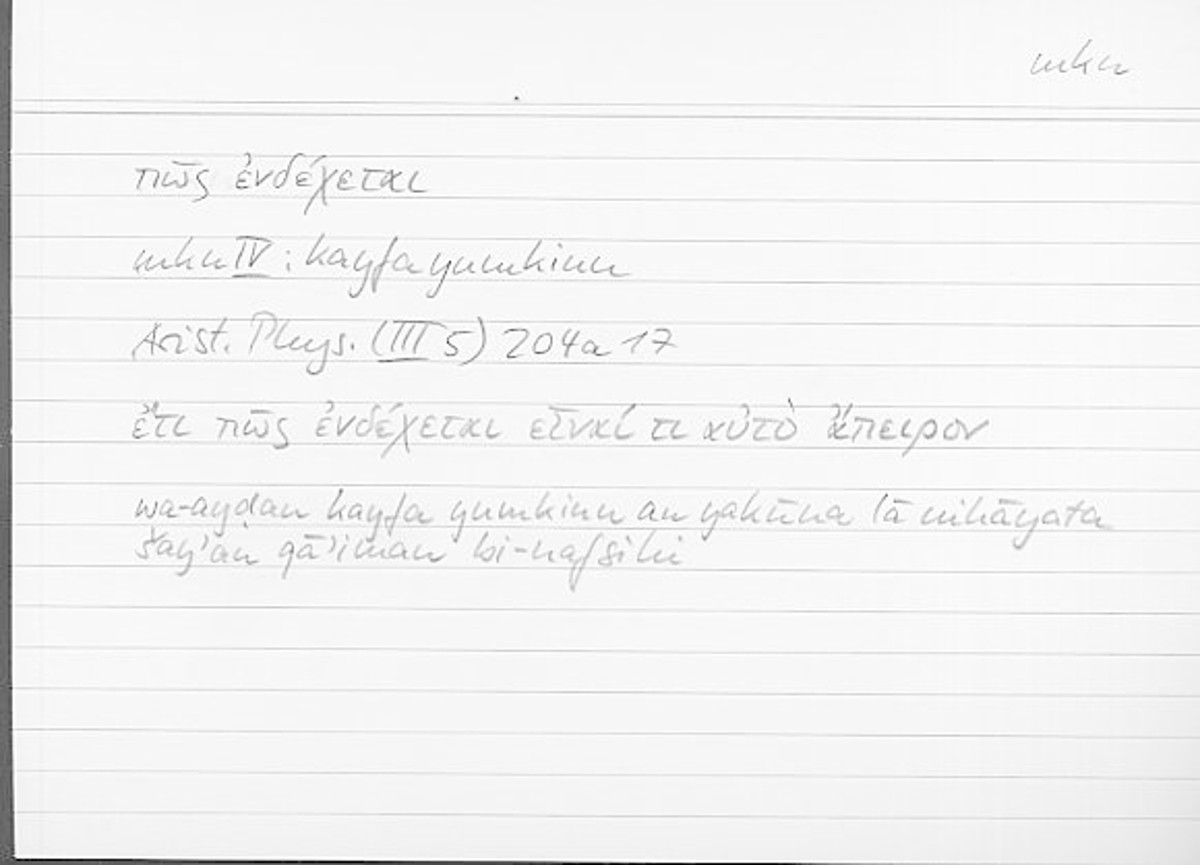 mkn
πῶς ἐνδέχεται
mkn IV : kayfa yumkinu
Arist. Phys. (III 5) 204a 17
ἔτι πῶς ἐνδέχεται εἶναί τι αὐτὸ ἄπειρον
wa-ayḍan kayfa yumkinu an yakūna lā nihāyata
šay'an qā'iman bi-nafsihi